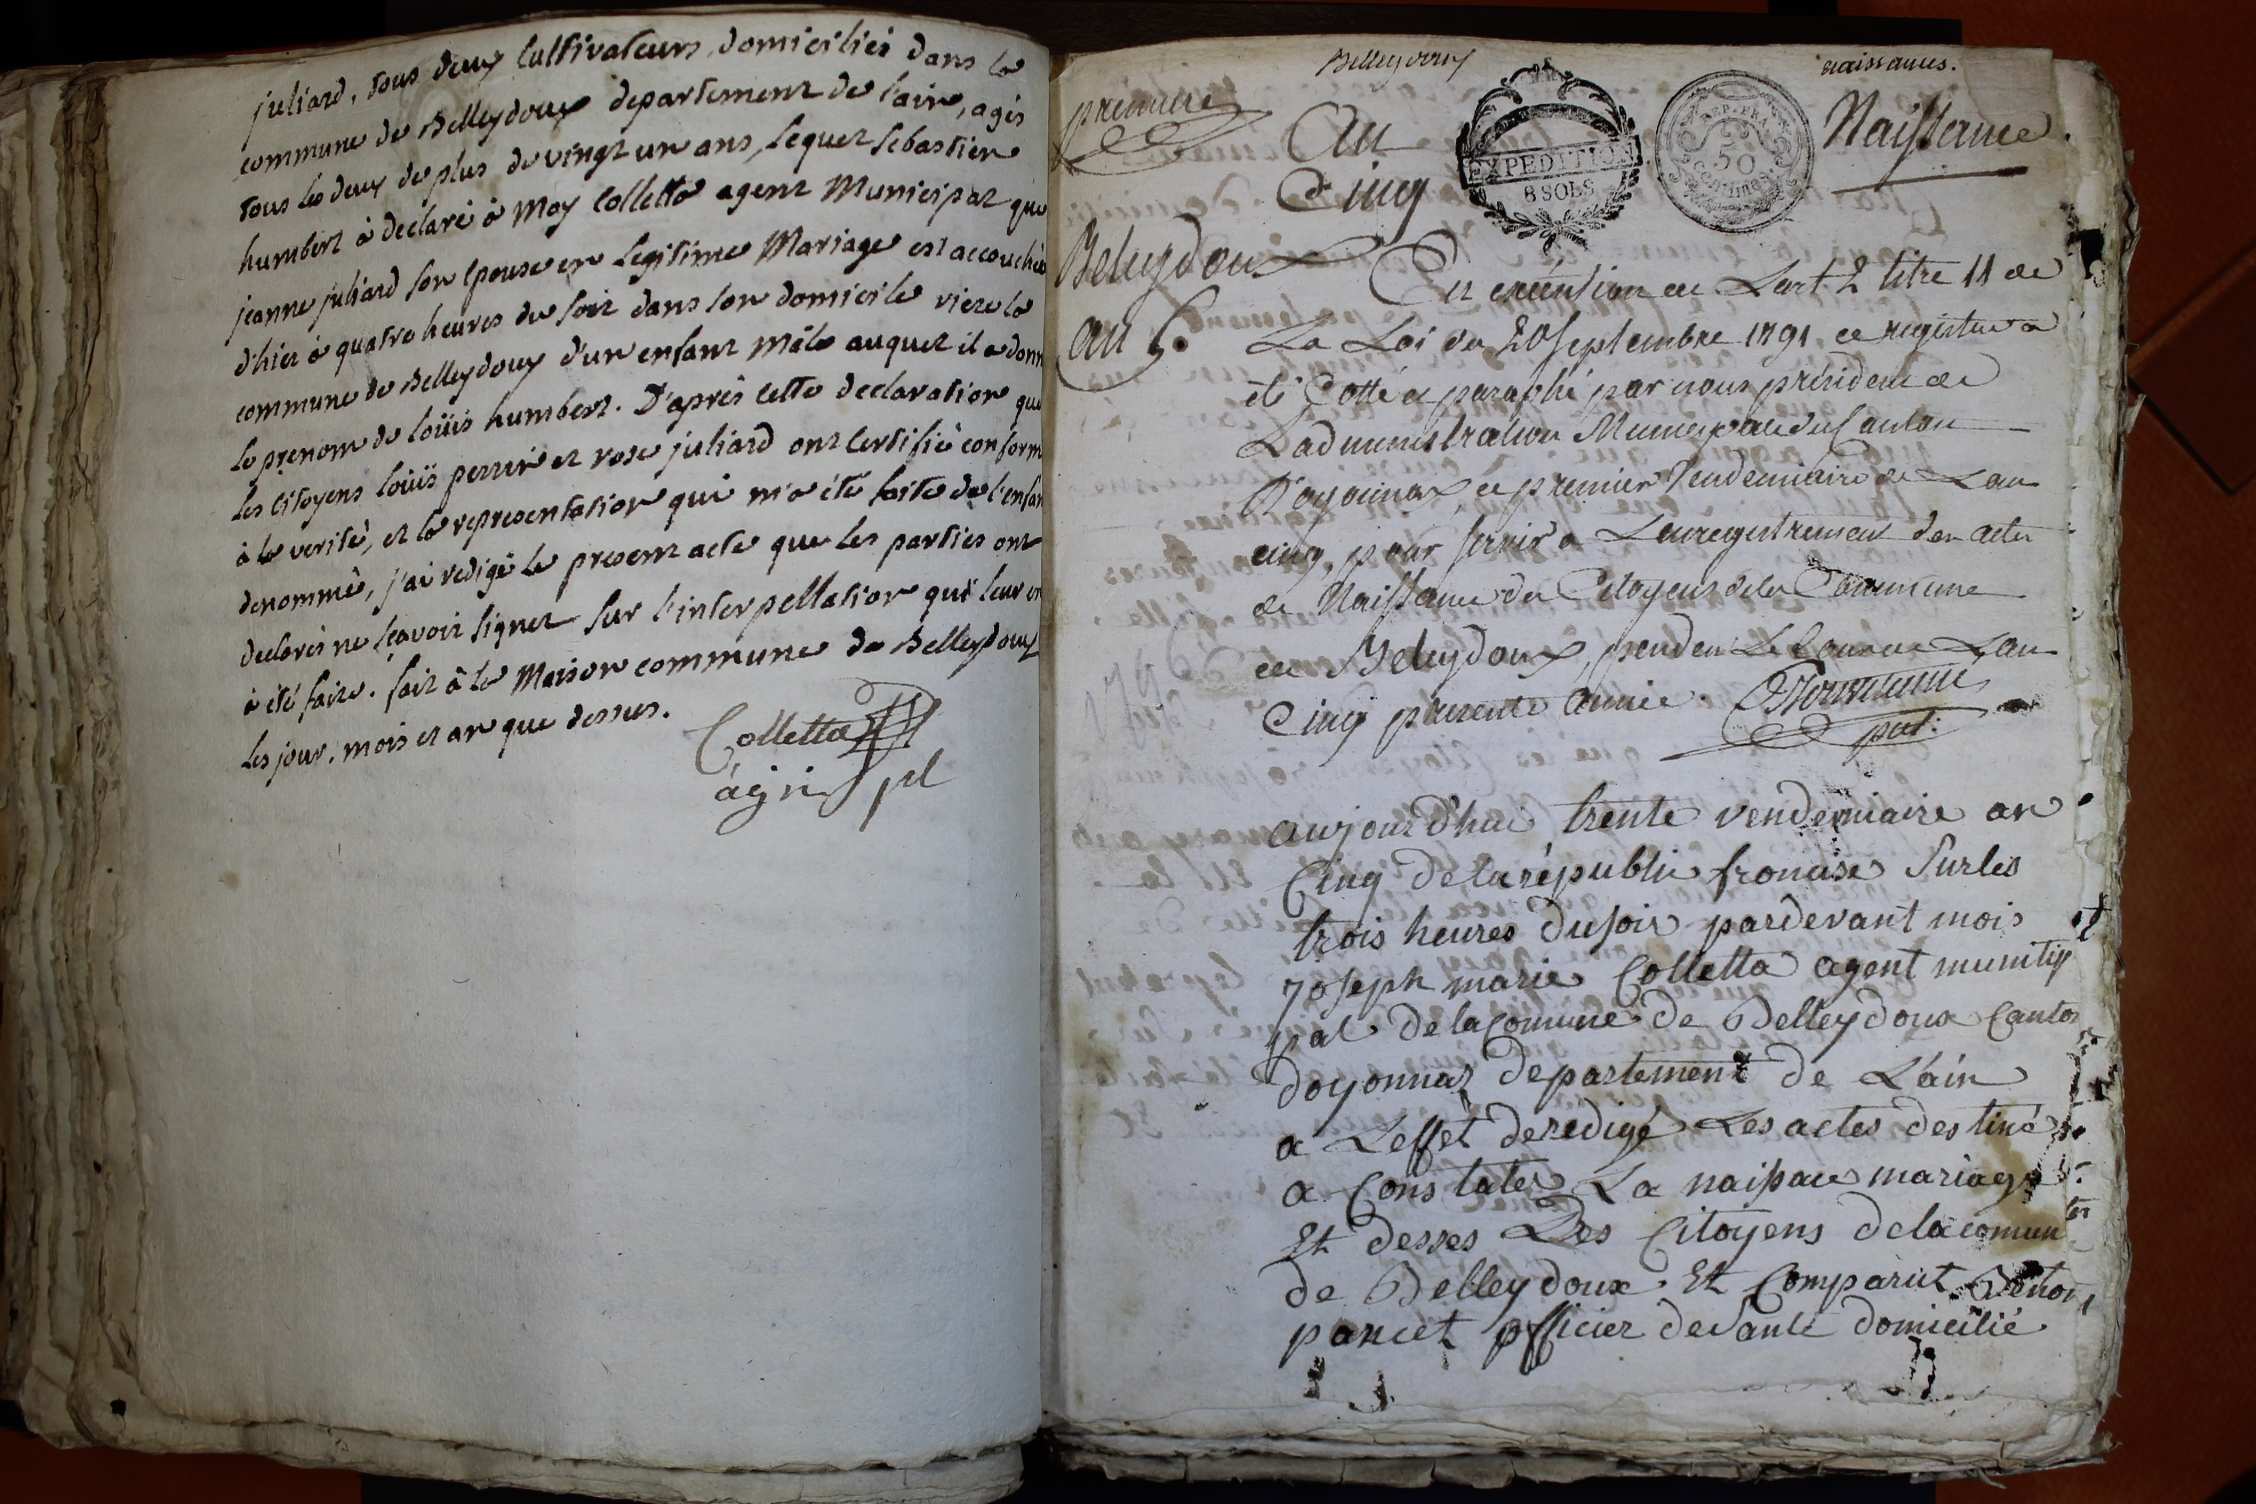 juliard, tous deux Cultivateurs domiciliés dans la
commune de Belleydoux departement de l'ain, agés
tous les deux de plus de vingt un ans, lequel sebastien
humbert à declaré à Moy Colletta agent Municipal que
jeanne juliard son Epouse en legitime Mariage est accouchée
d'hier à quatre heures du soir dans son domicile riere la
commune de Belleydoux d'un enfant mâle auquel il a donn
le prenom de loüis humbert. D'aprés cette declaration que
les citoyens loüis perrin et rose juliard ont Certifié conform
à la verité, et la representation qui m'a été faite de l'enfan
denommé, j'ai redigé le present acte que les parties ont
declarés ne sçavoir signer sur l'interpellation qui leur en
a été faite. fait à la Maison commune de Belleydoux
les jour, mois et an que dessus.
Colletta
agt pal
Belleydoux
naissances.
premiere
An
Cinq
EXPEDITION
8 SOLS
REP. FRA
50
Centimes
Naissance.
Beleydoux
an 5.
En exécution de Lart 2 titre 11 de
La Loi du 20 septembre 1791 ce registre a
été Cotté et paraphé par nous président de
Ladministration Municipale du Canton
D'oyonnax, ce premier Vendemiaire de Lan
cinq, pour servir a Lenregistrement des actes
de Naissance des Citoyens de la Commune
de Beleydoux, pendant Le Courant Lan
Cinq presente année.
pdt.
aujourd'hui trente vendemiaire an
Cinq de la républic froncaise Surles
trois heures du soir pardevant mois
joseph marie Colletta agent munitip
pal de la comune de Belleydoux Canton
doyonnaz departement de L'ain
a Leffet deredigé Les actes destiné
a Constater La naissace mariage
Et desses Des Citoyens dela comun
de Belleydoux. Et Comparut
pancet officier de Santé domicilié